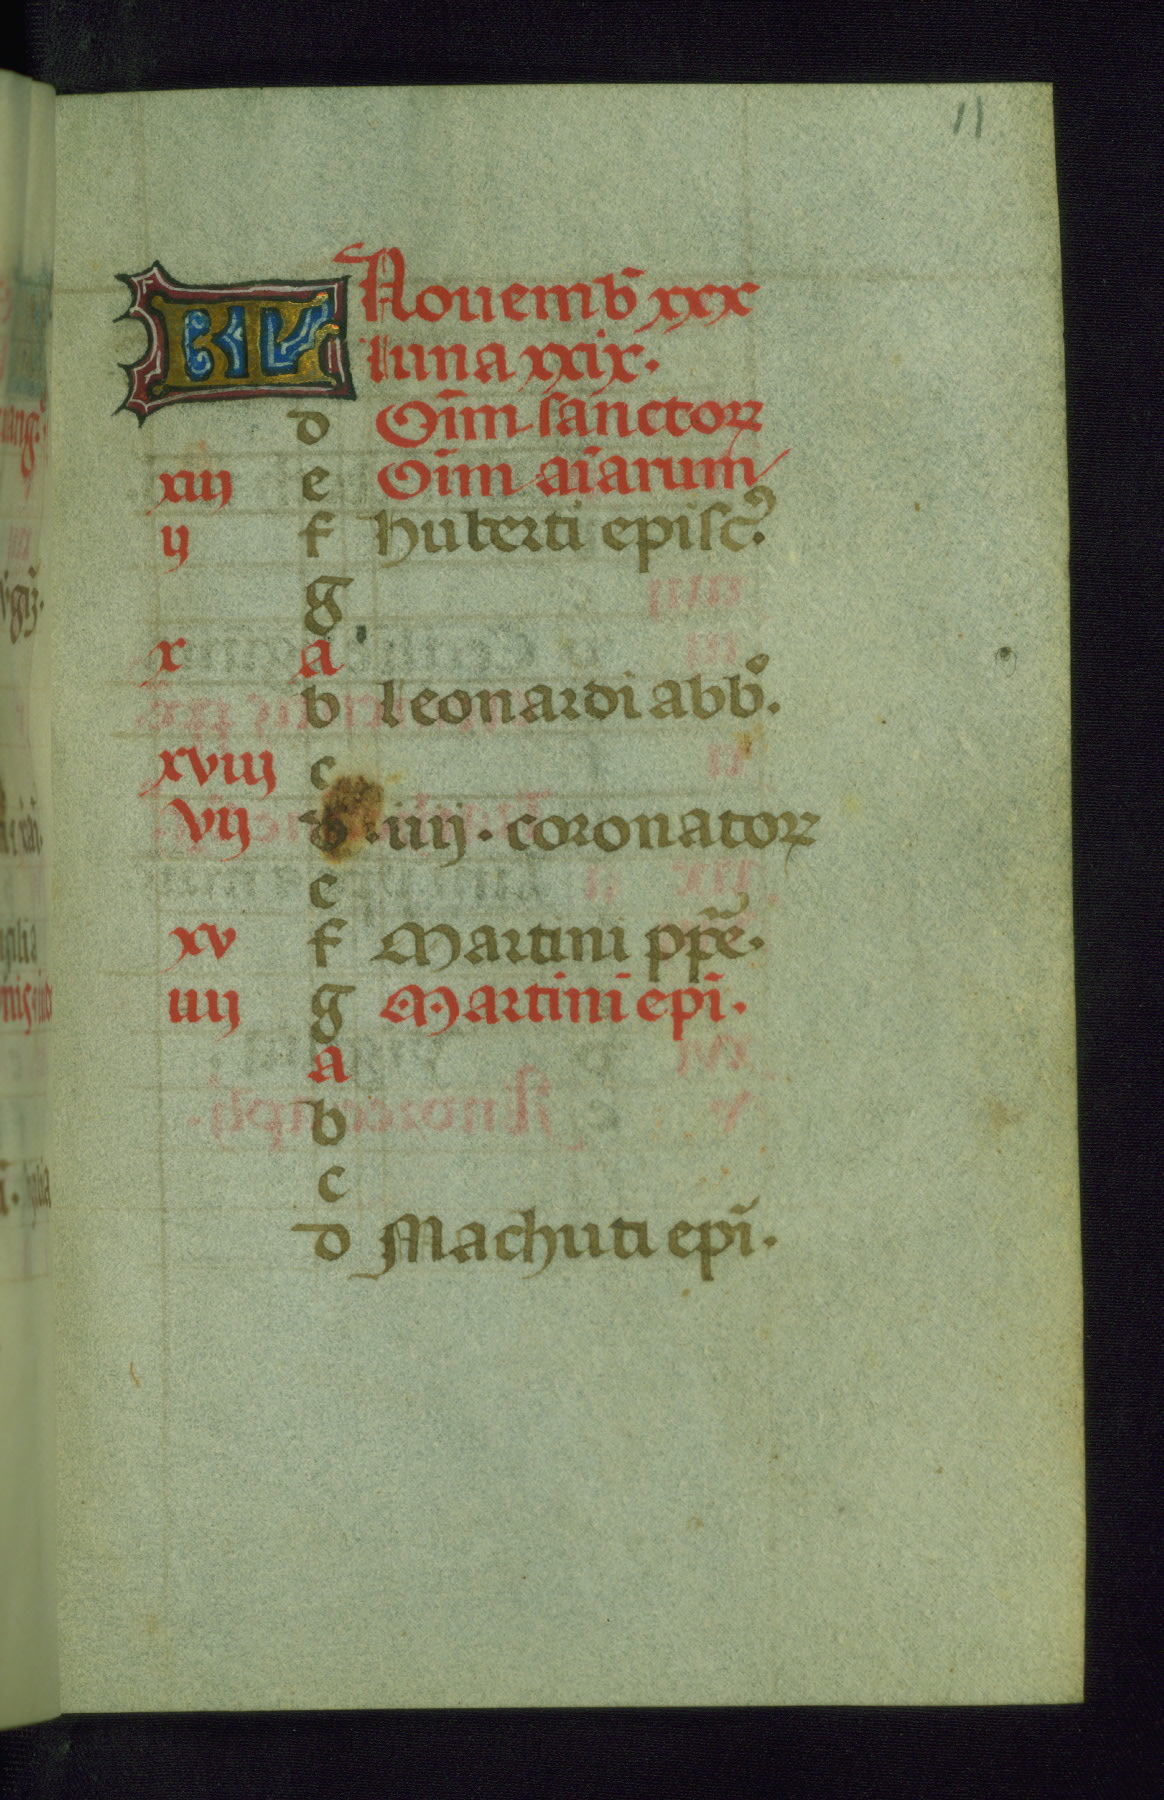 11
KL Nouemb̄ xxx
luna xxix.
d Oīm sanctoꝝ
xiij e Oīm aīarum
ij f huberti episcꝰ.
g
x a
b leonardi abb̓.
xviij c
vij d .iiij. coronatoꝝ
e
xv f Martini pp̄e.
iiij g Martini epī.
a
b
c
d Machuti epī.